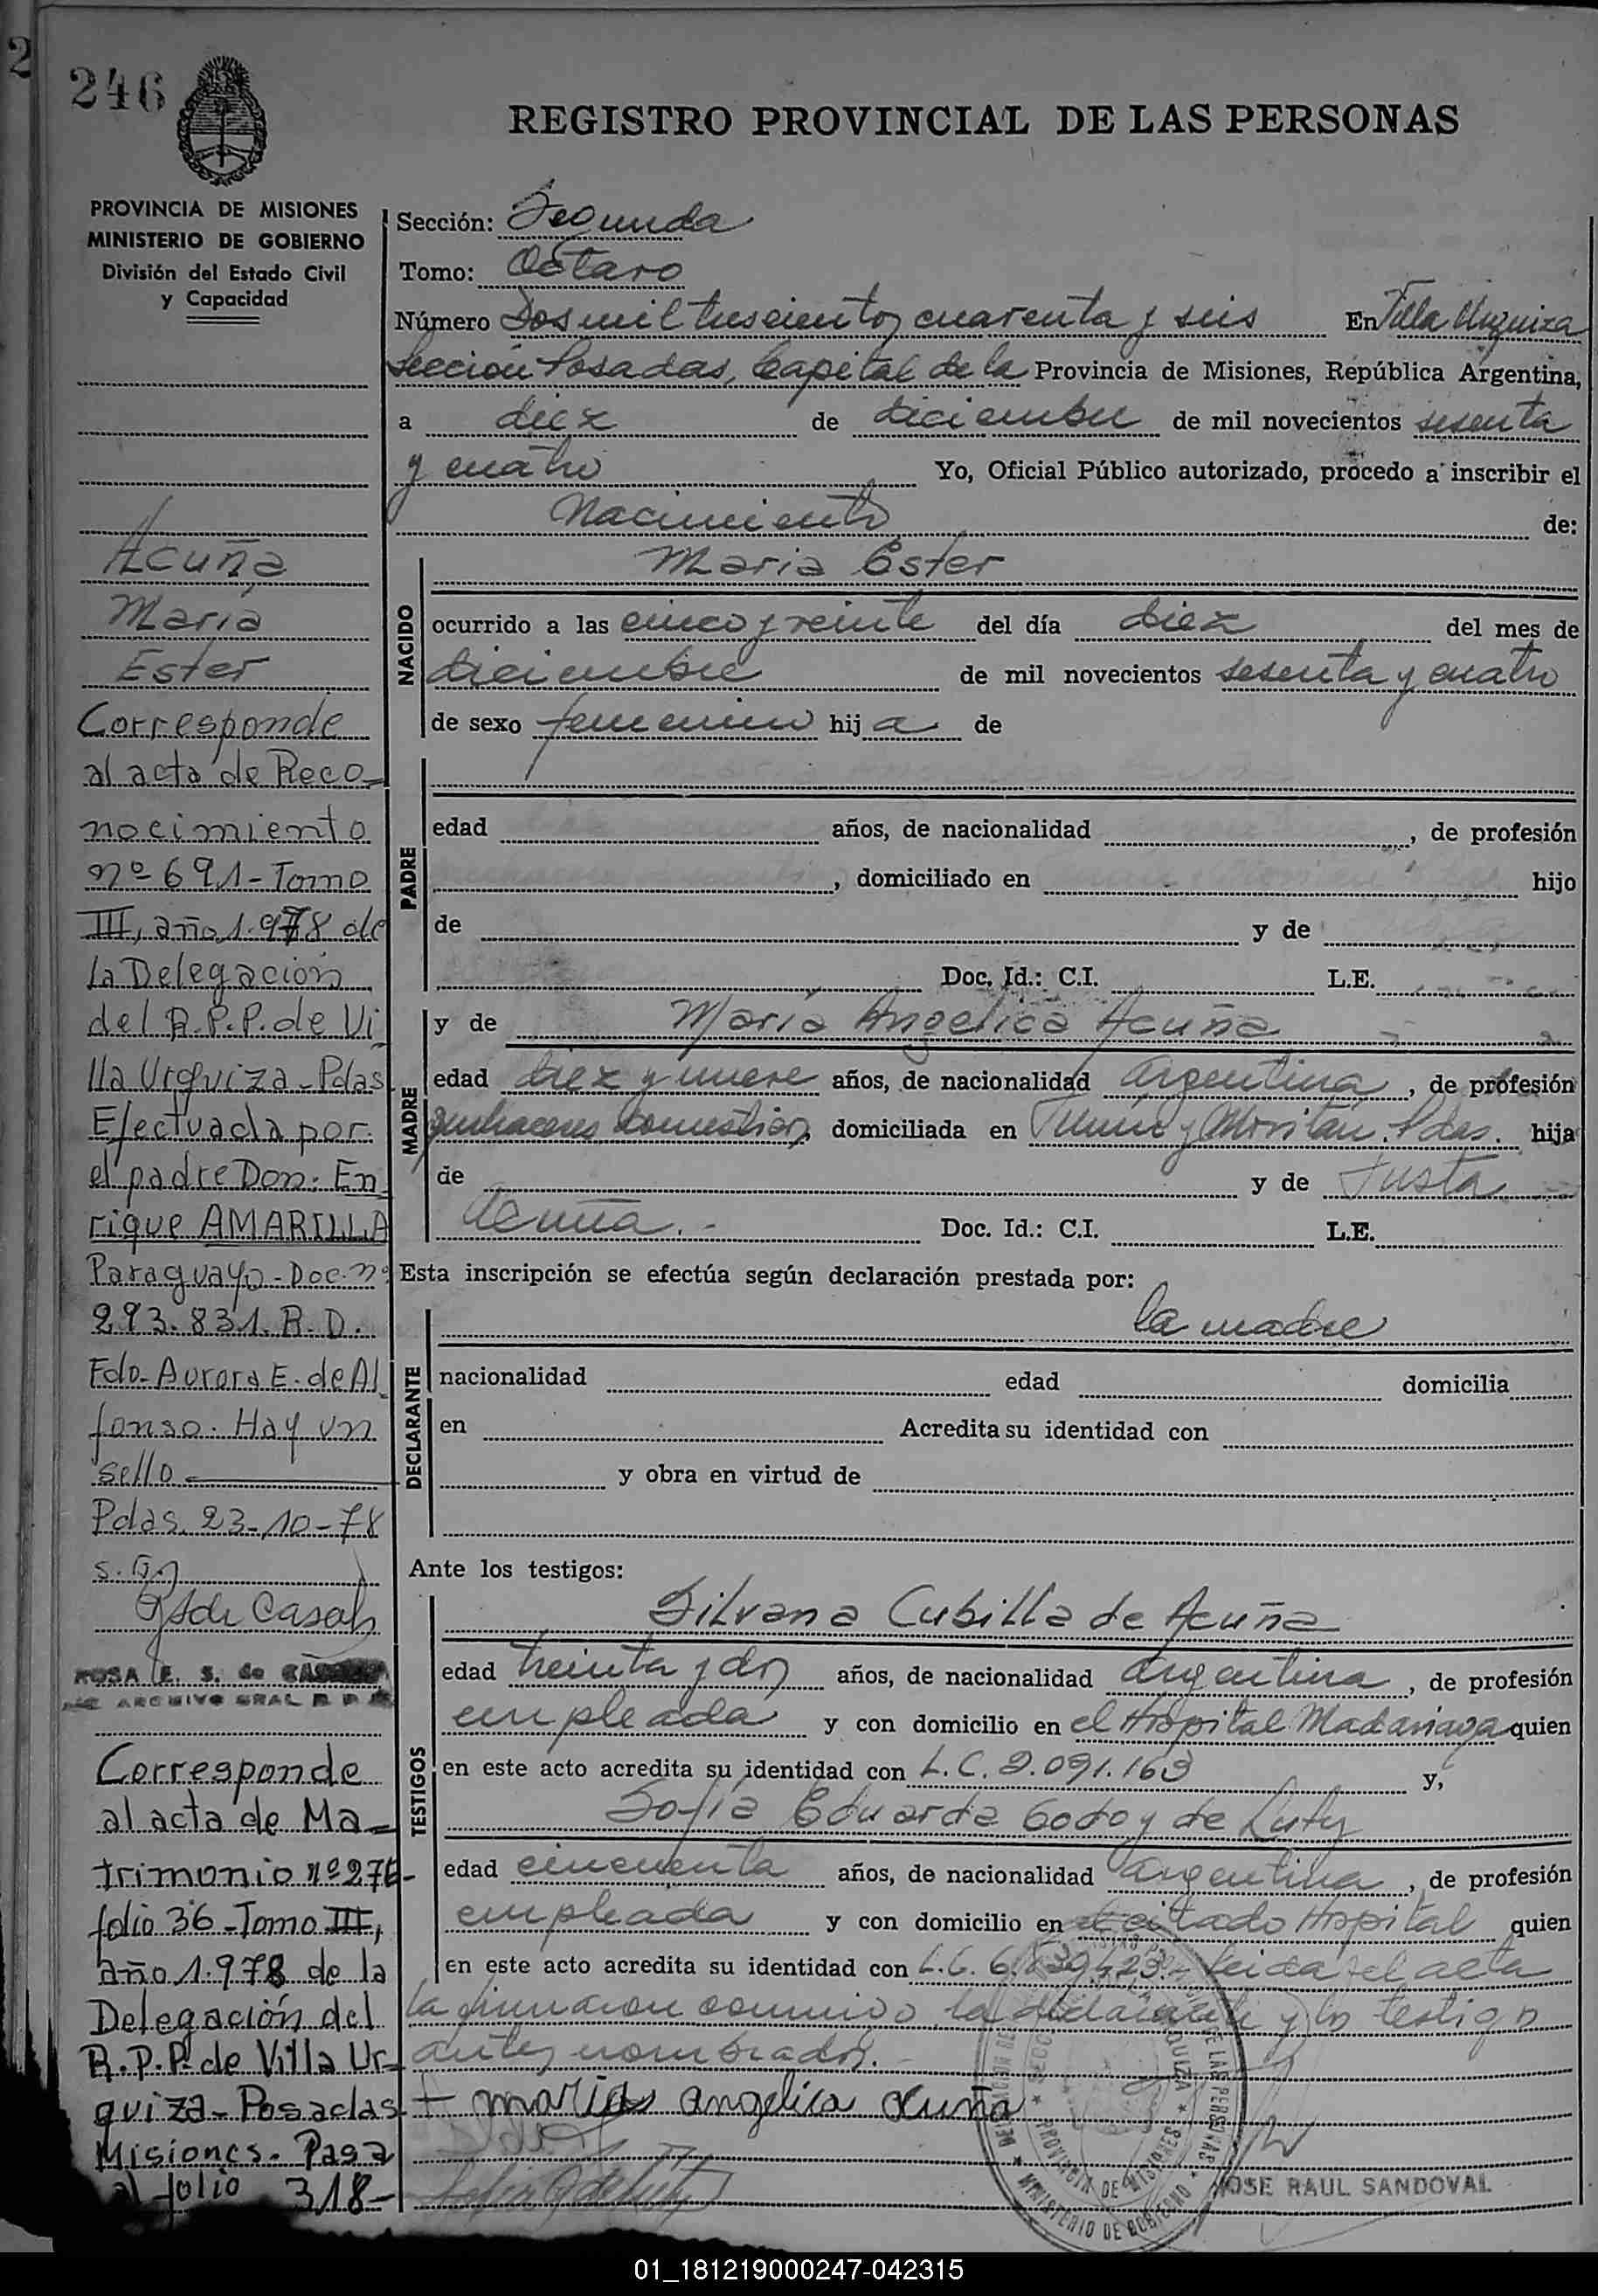 2
246
REGISTRO PROVINCIAL DE LAS PERSONAS
PROVINCIA DE MISIONES
MINISTERIO DE GOBIERNO
División del Estado Civil
y Capacidad
Acuña
María
Ester
Corresponde
al acta de Reco-
nocimiento
nº 691-Tomo
III, año 1.978 de
la Delegación
del R.P.P. de Vi
lla Urquiza-Pdas
Efectuada por
el padre Don: En
rique AMARILLA
Paraguayo-Doc. nº
293.831.R.D.
Fdo. Aurora E. de Al
fonso. Hay un
sello.
Pdas. 23-10-78
de Casals
ROSA E. S. de
ARCHIVO GRAL R. P.
Corresponde
al acta de Ma-
trimonio nº 276-
folio 36-Tomo III,
año 1.978 de la
Delegación del
R.P.P. de Villa Ur-
quiza-Posadas-
Misiones. Pasa
al folio 318-
Sección: Segunda
Tomo: Octavo
Número Dos mil trescientos cuarenta y seis En Villa Urquiza
Sección Posadas, Capital de la Provincia de Misiones, República Argentina,
a diez de diciembre de mil novecientos sesenta
y cuatro Yo, Oficial Público autorizado, procedo a inscribir el
Nacimiento de:
NACIDO
María Ester
ocurrido a las cinco y veinte del día diez del mes de
diciembre de mil novecientos sesenta y cuatro
de sexo femenino hij a de
PADRE
edad años, de nacionalidad , de profesión
, domiciliado en hijo
de y de
Doc. Id.: C.I. L.E.
MADRE
y de María Angélica Acuña
edad diez y nueve años, de nacionalidad argentina, de profesión
quehaceres domésticos, domiciliada en y Pdas. hija
de y de Justa
Acuña.- Doc. Id.: C.I. L.E.
Esta inscripción se efectúa según declaración prestada por:
DECLARANTE
la madre
nacionalidad edad domicilia
en Acredita su identidad con
y obra en virtud de
Ante los testigos:
TESTIGOS
Silvana Cubilla de Acuña
edad treinta y dos años, de nacionalidad argentina, de profesión
empleada y con domicilio en el Hospital Madariaga quien
en este acto acredita su identidad con L.C. 2.091.163 y,
Sofía Eduarda Godoy de
edad cincuenta años, de nacionalidad argentina, de profesión
empleada y con domicilio en el citado Hospital quien
en este acto acredita su identidad con L.C. Leida el acta
la firmaron conmigo, la declarante y los testigos
antes nombrados.
maria angelica acuña
PROVINCIA DE MISIONES
MINISTERIO DE GOBIERNO
JOSE RAUL SANDOVAL
01_181219000247-042315